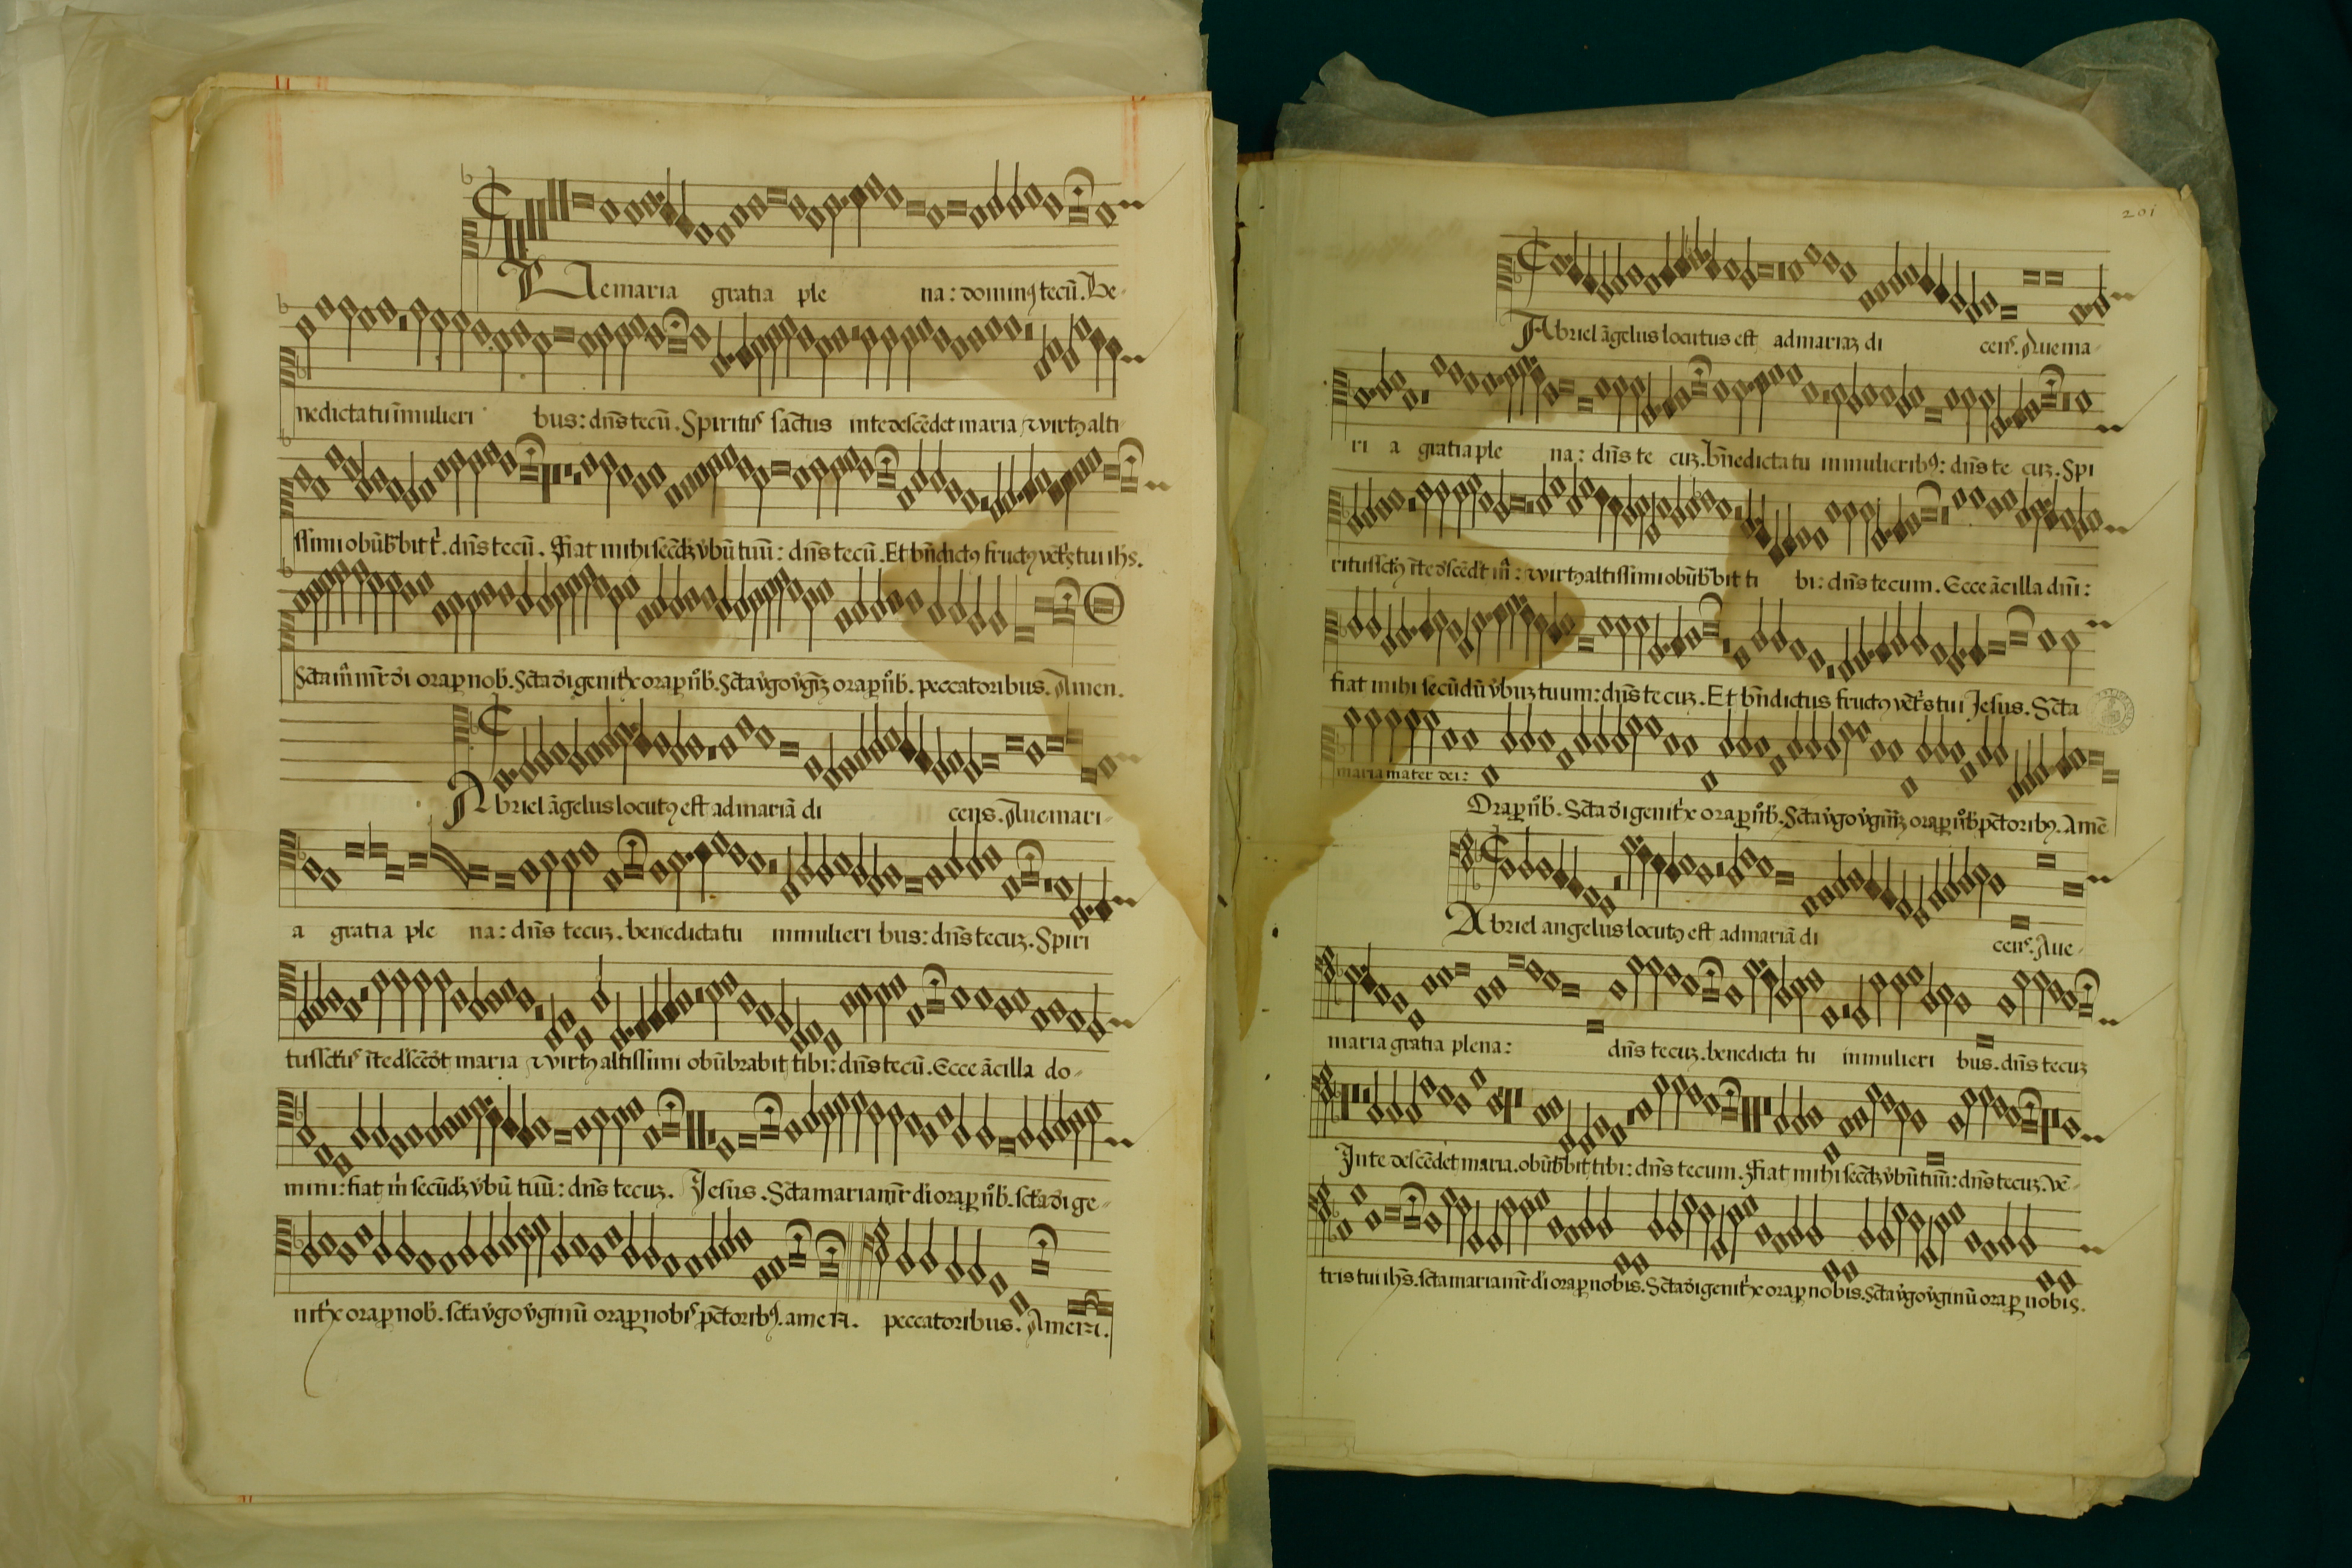 Aue maria gratia ple na: dominꝯ tecū. Be-
nedicta tu ī mulieri bus: dn̄s tecū. Spiritus sāctus in te descēdet maria ⁊ virtꝯ alti
ssimi obūb̄bit t̄. dn̄s tecū. Fiat mihi secūdꝫ v̄bū tuū: dn̄s tecū. Et bn̄dictꝯ fructꝯ vēt̄s tui ih̄s.
Sc̄ta m̄ mr̄ di ora p nob̄. Sc̄ta di genit̄x ora p nb̄. Sc̄ta v̄go v̄ginꝫ ora p nb̄. peccatoribus. Amen.
Abriel āgelus locutꝯ est ad mariā di cens. Aue mari-
a gratia ple na: dn̄s tecuꝫ. benedicta tu in mulieri bus: dn̄s tecuꝫ. Spiri
tus sct̄us ī te descēdt maria ⁊ virtꝯ altissimi obūbrabit tibi: dn̄s tecū. Ecce ācilla do-
mini: fiat m̄ secūdꝫ v̄bū tuū: dn̄s tecuꝫ. Jesus. Sc̄ta maria mr̄ di ora p nb̄. sc̄ta di ge-
nit̄x ora p nob̄. sc̄ta v̄go v̄ginū ora p nobis pc̄toribꝯ. amen. peccatoribus. Amen.
201
Abriel āgelus locutus est ad mariaꝫ di cens. Aue ma-
ri a gratia ple na: dn̄s te cuꝫ. bn̄edicta tu in mulieribꝯ: dn̄s te cuꝫ. Spi
ritus sct̄ꝯ ī te descēdt m̄: ⁊ virtꝯ altissimi obūb̄bit ti bi: dn̄s tecum. Ecce ācilla dn̄i:
fiat mihi secūdū v̄buꝫ tuum: dn̄s te cuꝫ. Et bn̄dictus fructꝯ vēt̄s tui Jesus. Sc̄ta
maria mater dei: Ora p nb̄. Sc̄ta di genit̄x ora p nb̄. Sc̄ta v̄go v̄ginꝫ ora p nb̄ pc̄toribꝯ. Amē
Abriel angelus locutꝯ est ad mariā di cens. Aue-
maria gratia plena: dn̄s tecuꝫ. benedicta tu in mulieri bus. dn̄s tecuꝫ
In te descēdet maria. obūb̄bit tibi: dn̄s tecum. Fiat mihi secūdꝫ v̄bū tuū: dn̄s tecuꝫ. vē-
tris tui ih̄s. sc̄ta maria mr̄ di ora p nobis. Sc̄ta di genit̄x ora p nobis. Sc̄ta v̄go v̄ginū ora p nobis.